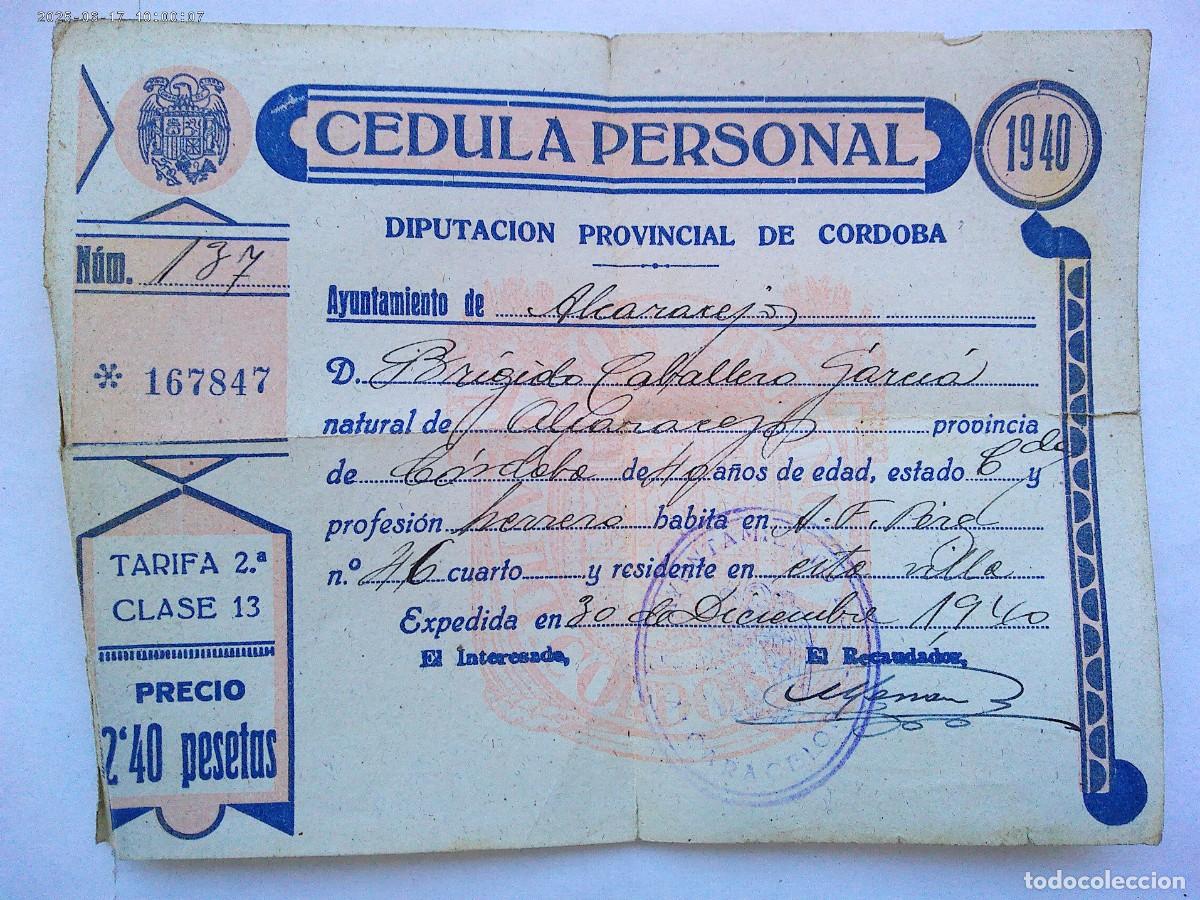 2025-08-17 10:00:07
CEDULA PERSONAL
1940
DIPUTACION PROVINCIAL DE CORDOBA
Núm. 137
* 167847
TARIFA 2.ª
CLASE 13
PRECIO
2'40 pesetas
Ayuntamiento de Alcaracejos
D. Brígido Caballero García
natural de Alcaracejos provincia
de Córdoba de 49 años de edad, estado C do y
profesión herrero habita en A. F. Pérez
n.º 46 cuarto y residente en esta villa
Expedida en 30 de Diciembre 1940
El Interesado, El Recaudador,
todocoleccion